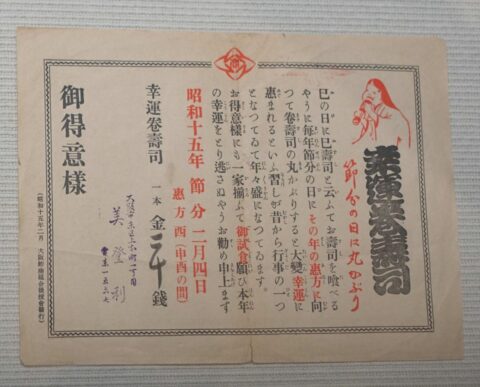 幸運巻壽司
節分の日に丸かぶり
巳の日に巳壽司と云ふてお壽司を喰べる
やうに毎年節分の日にその年の惠方に向
つて巻壽司の丸かぶりすると大變幸運に
惠まれるといふ習しが昔から行事の一つ
となつてゐて年々盛になつてゐます。
お得意様にも一家揃ふて御試食願ひ本年
の幸運をとり逃さぬやうお勸め申上ます
昭和十五年 節分 二月四日
惠方西(申酉の間)
幸運巻壽司 一本 金 錢
美登利
御得意様
(昭和十五年二月 大阪鮓商組合後援會發行)